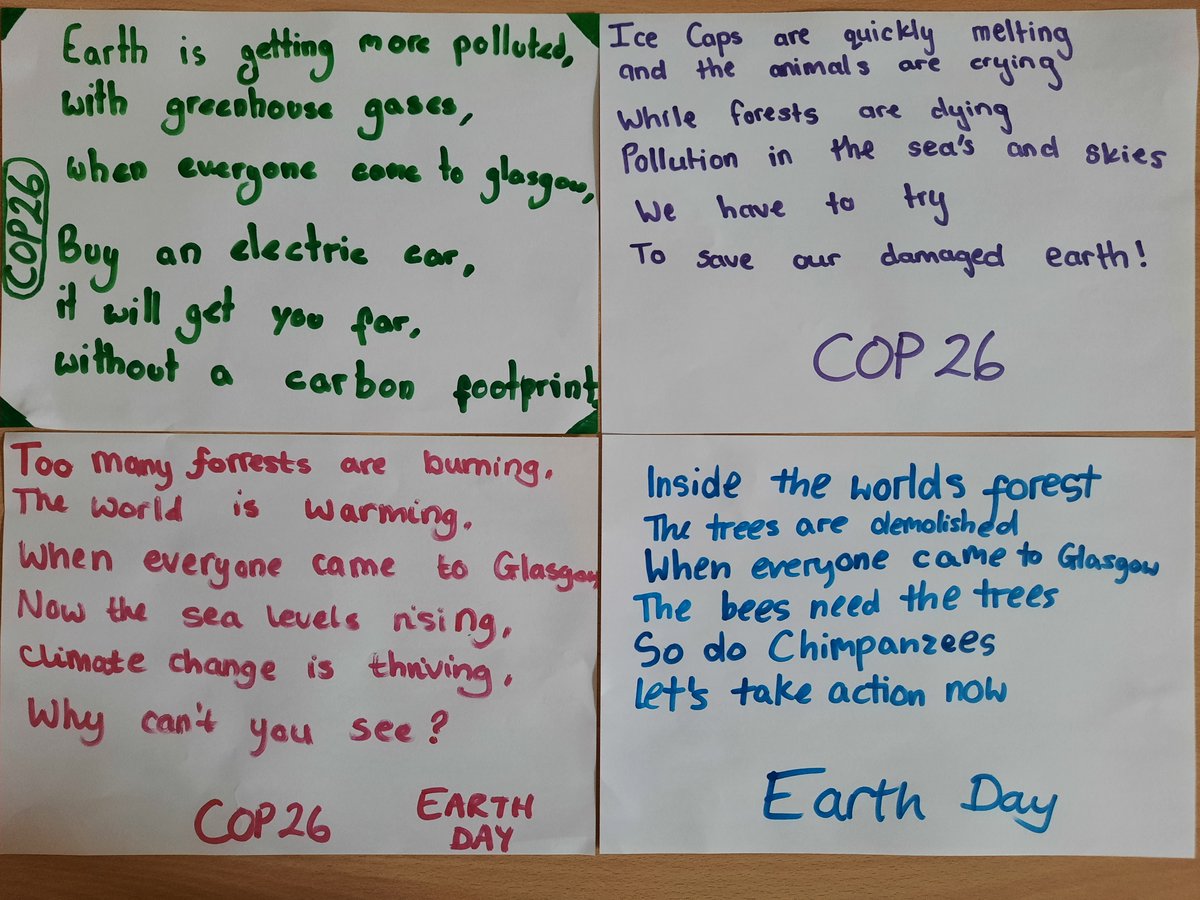 Earth is getting more polluted,
with greenhouse gases,
when everyone came to glasgow,
Buy an electric car,
it will get you far,
without a carbon footprint.
COP26
Ice Caps are quickly melting
and the animals are crying
While forests are dying
Pollution in the sea's and skies
We have to try
To save our damaged earth!
COP 26
Too many forrests are burning.
The world is warming.
When everyone came to Glasgow,
Now the sea levels rising,
climate change is thriving,
Why can't you see?
COP26
EARTH
DAY
Inside the worlds forest
The trees are demolished
When everyone came to Glasgow
The bees need the trees
So do Chimpanzees
Let's take action now
Earth Day